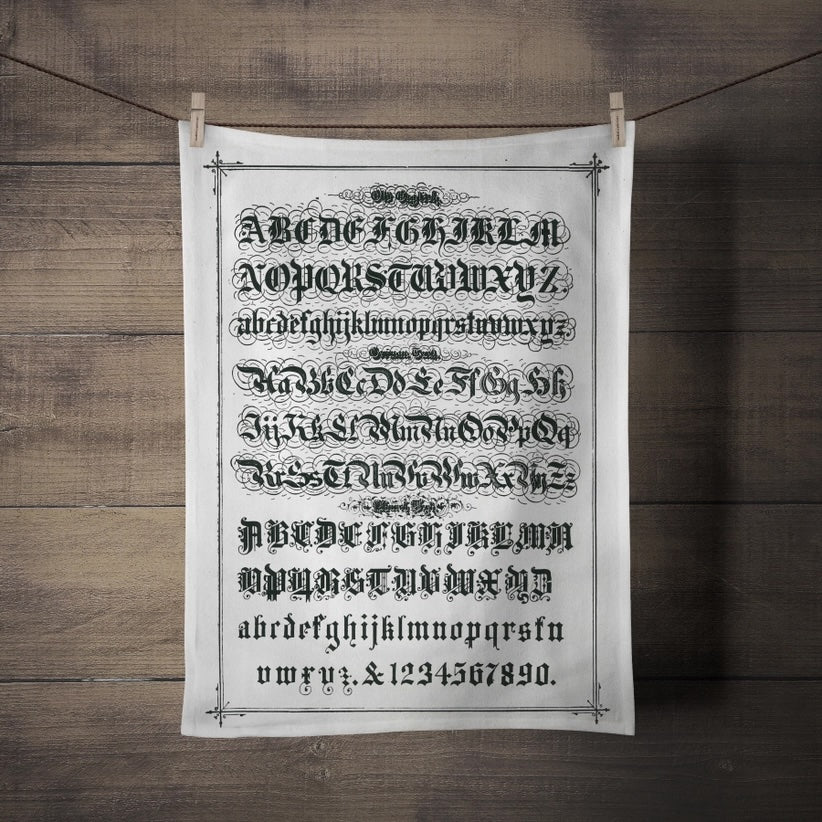 Old English.
ABCDEFGHIKLM
NOPQRSTUVWXYZ.
abcdefghijklmnopqrstuvwxyz.
German Text.
AaBbCcDdEeFfGgHh
IijKkLlMmNnOoPpQq
RrSsTtUuVvWwXxYyZz
Church Text.
ABCDEFGHIKLMN
OPQRSTUVWXYZ
abcdefghijklmnopqrstu
vwxyz.&1234567890.